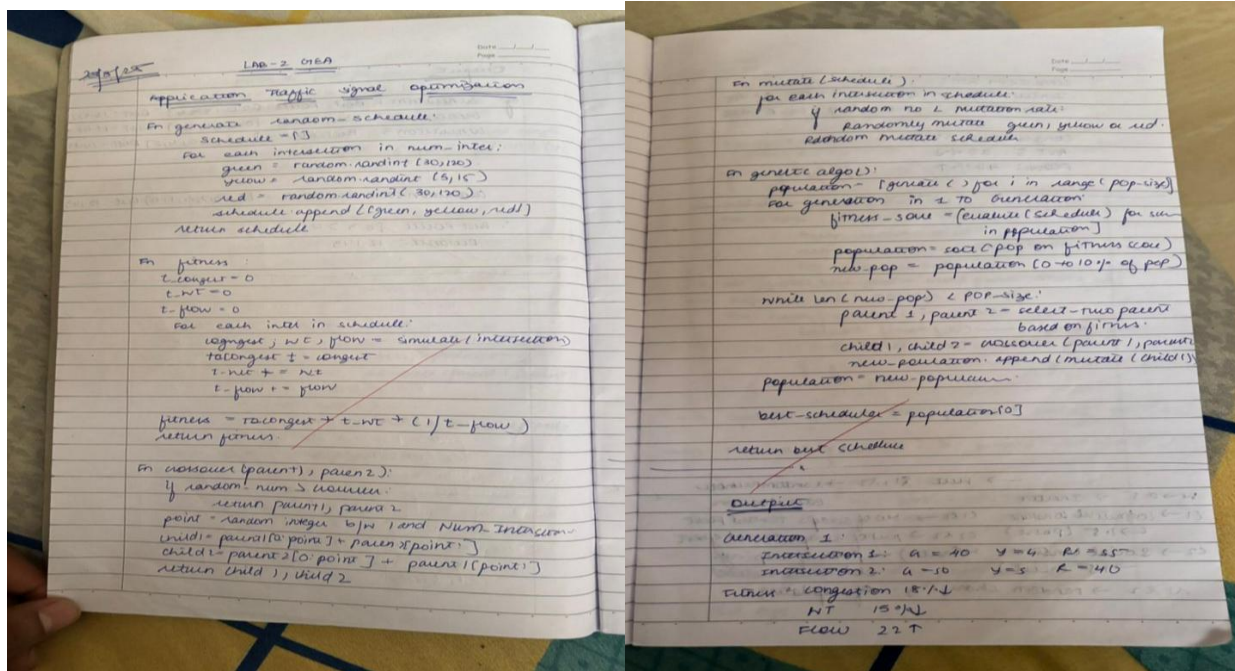 Date
Page
LAB-2 GEA
Application Traffic signal optimization
Fn generate random-schedule:
schedule = [ ]
For each intersection in num_inter:
green = random.randint (30,120)
yellow = random.randint (5,15)
red = random.randint (30,120)
schedule.append ([green, yellow, red])
return schedule
Fn fitness :
t_congest = 0
t_wt = 0
t_flow = 0
For each inter in schedule:
congest, wt, flow = simulate (intersection)
tocongest += congest
t-wt += wt
t-flow += flow
fitness = tocongest + t_wt + (1/t-flow)
return fitness.
Fn crossover (parent1, paren2):
if random-num >
return parent1, parent2
point = random integer b/w 1 and Num_
child1 = parent1[0:point] + paren2[point:]
child2 = parent2[0:point] + parent1[point:]
return child1, child2
Date
Page
Fn mutate (schedule) :
for each intersection in schedule:
if random no < mutation rate:
Randomly mutate green, yellow or red.
mutate schedule
Fn genetic algo():
population = [generate ( ) for i in range (pop-size)]
For generation in 1 to Generation:
fitness_score = [evaluate (schedule) for
in population]
population = sort (pop on fitness score)
new-pop = population (0 to 10% of pop)
while len (new-pop) < pop_size:
parent 1, parent 2 = select-two parent
based on fitness.
child1, child2 = crossover (parent 1, parent2
new-poulation. append (mutate (child1))
population = new-
best-schedule = population[0]
return best schedule
Output
Generation 1:
Intersection 1: G = 40 Y = 4 R = 35
Intersection 2: G = 50 Y = 5 R = 40
Fitness: congession 18% ↓
WT 15% ↓
FLOW 22 ↑